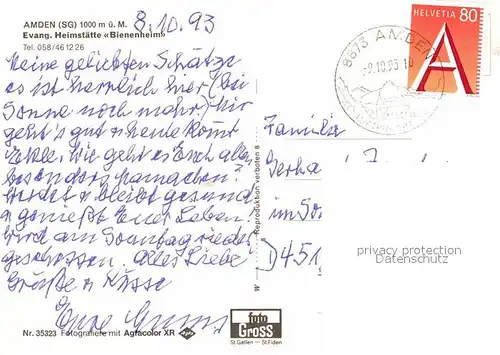 AMDEN (SG) 1000 m ü. M.
8.10.93
Evang. Heimstätte «Bienenheim»
Tel. 058/46 12 26
Meine geliebten Schätze
es ist herrlich hier (bei
Sonne noch mehr) Mir
geht's gut & heute kommt
Wie geht es Euch allen
besonders
& bleibt gesund
& genießt Euer Leben!
Wird am Sonntag wieder
geschossen. Alles Liebe
Grüße & Küsse
Eure
HELVETIA 80
A
8873 AMDEN
-9.10.93.10
Familie
Gerha
im So
D 451
privacy protection
Datenschutz
Reproduktion verboten
foto
GROSS
St. Gallen — St. Fiden
Nr. 35323 Fotografiere mit Agfacolor XR